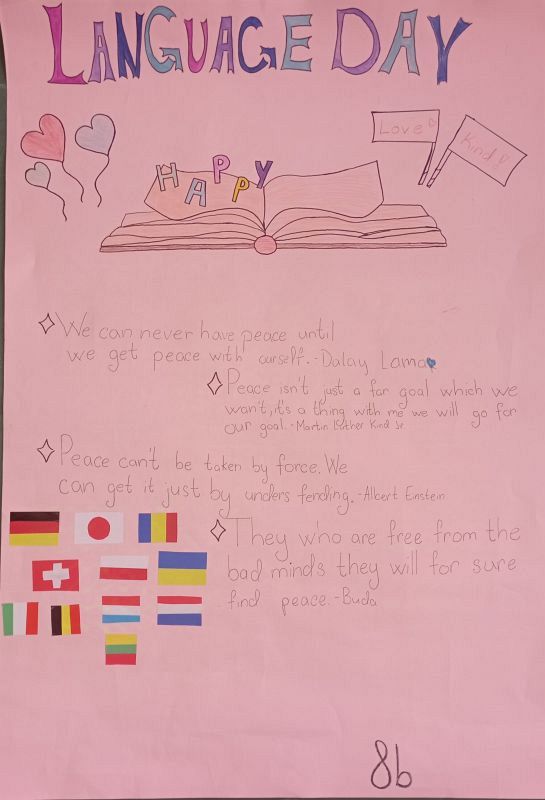 LANGUAGE DAY
Love
Kind!
HAPPY
We can never have peace until
we get peace with ourself.-Dalay Lama
Peace isn't just a far goal which we
want, it's a thing with me we will go for
our goal.-Martin Luther Kind Jr
Peace can't be taken by force. We
can get it just by unders fending.-Albert Einstein
They who are free from the
bad minds they will for sure
find peace.-Buda
8b